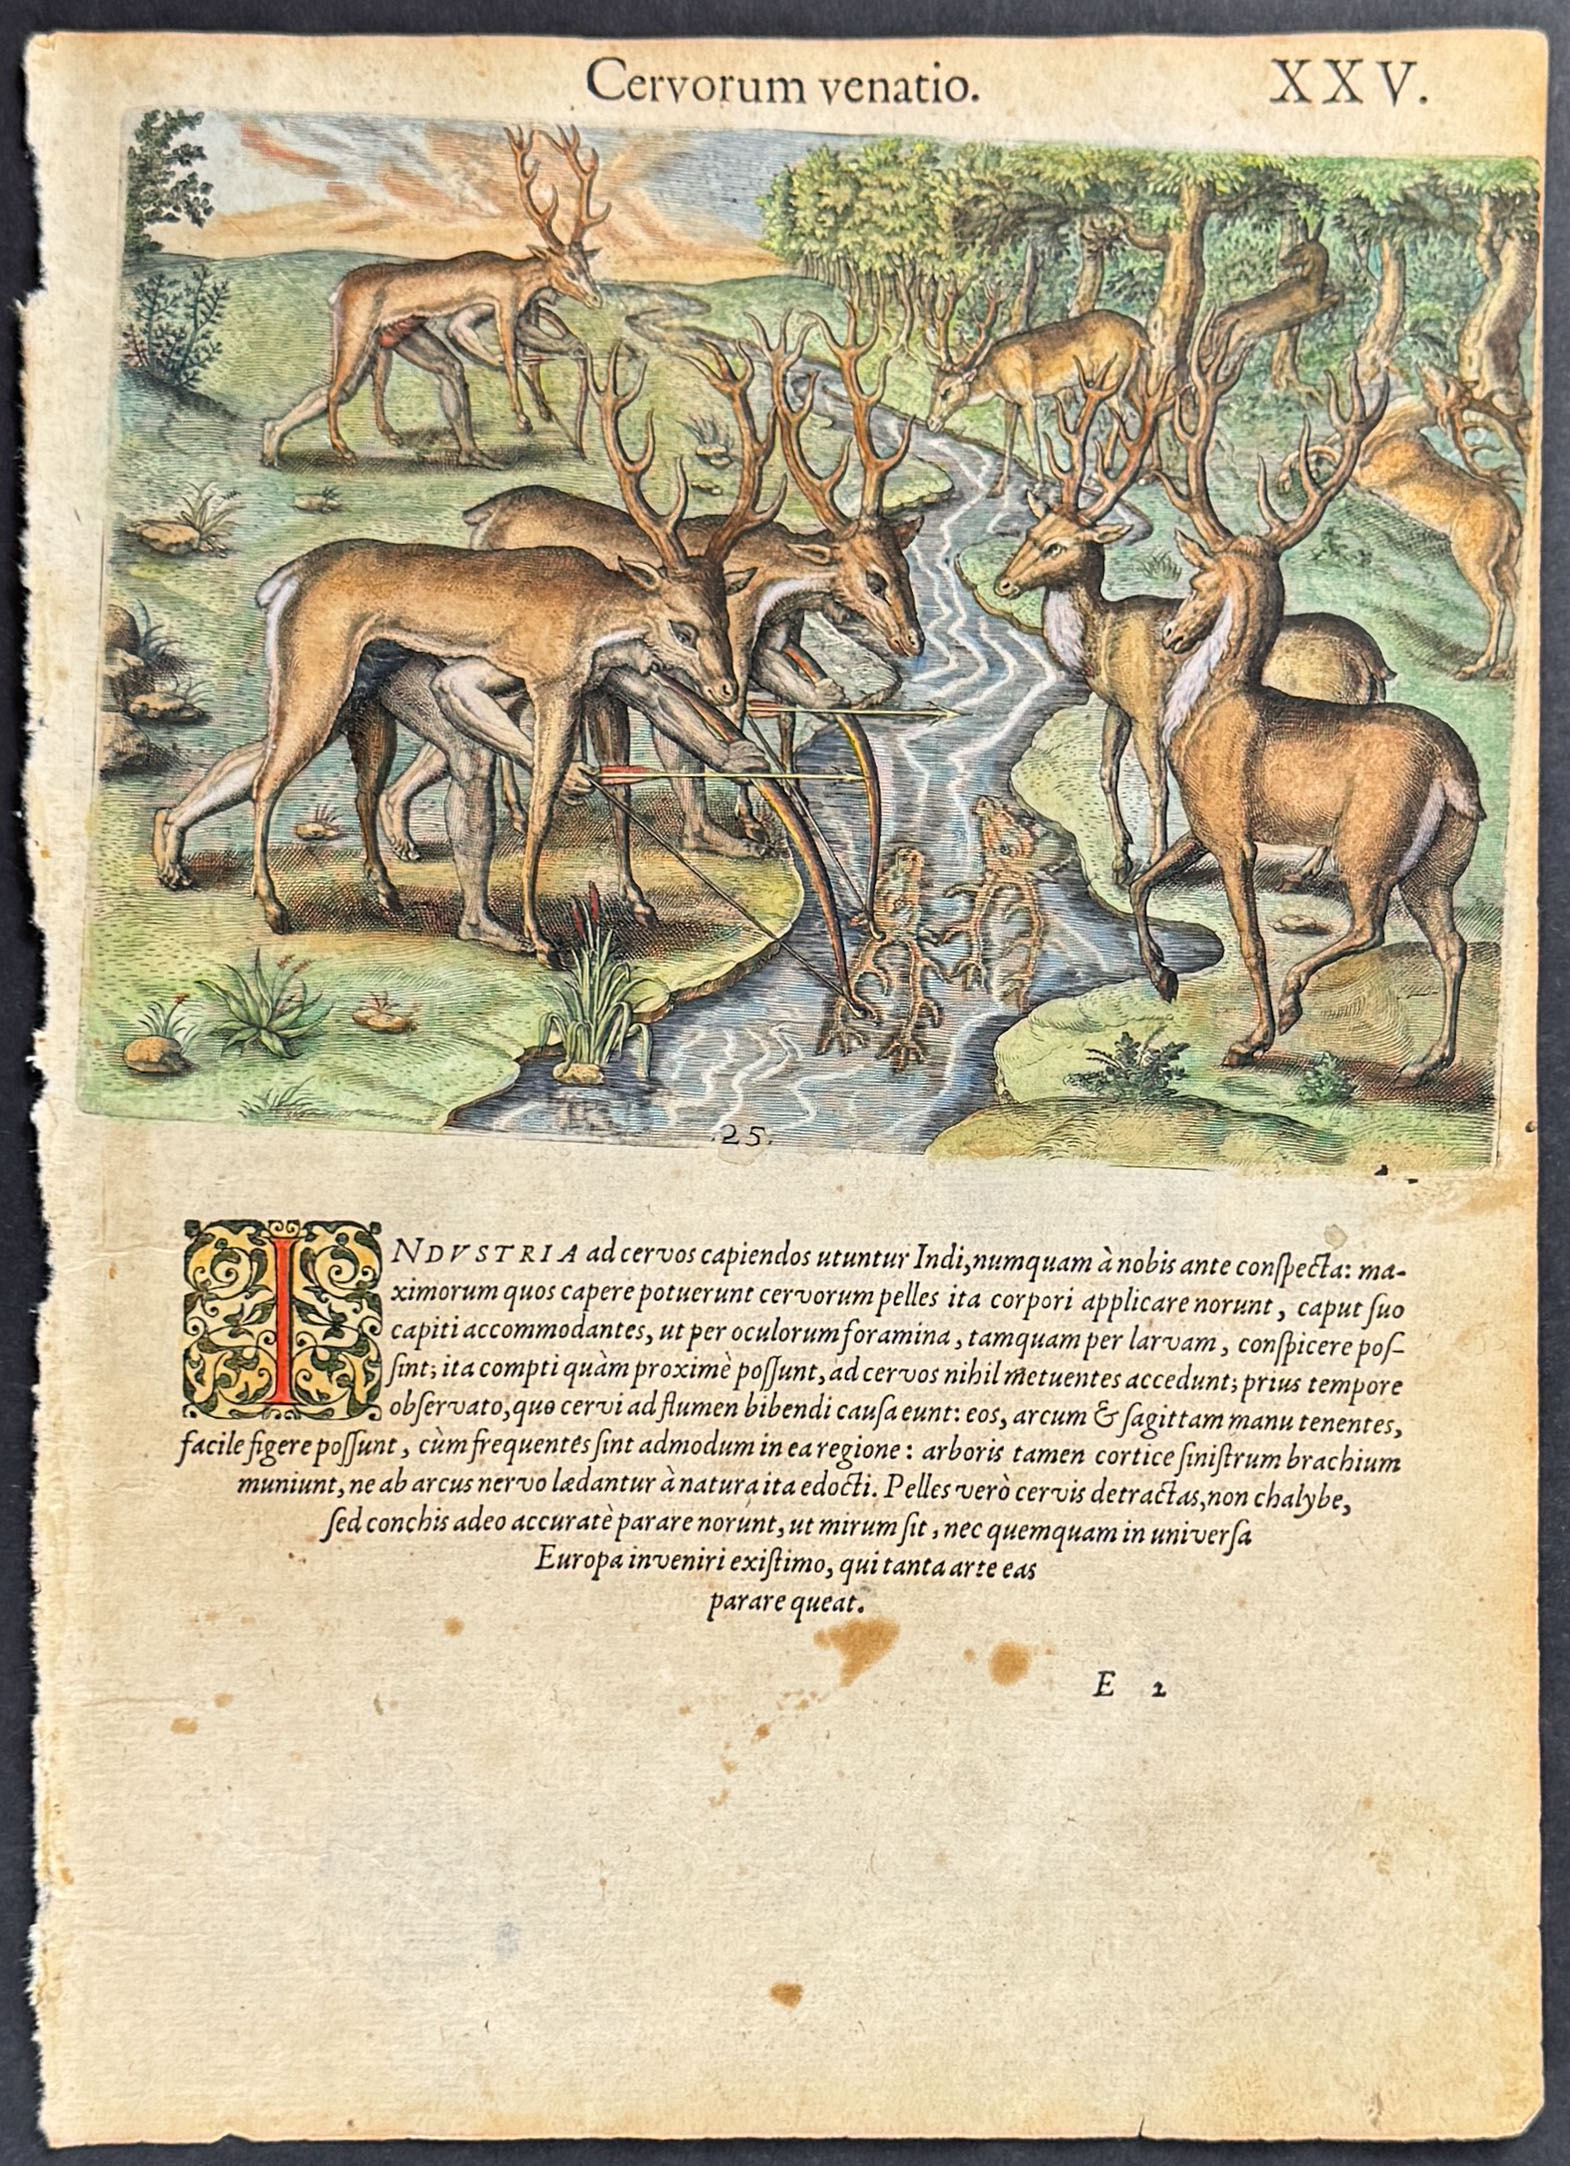 Cervorum venatio.
XXV.
.25.
INDVSTRIA ad cervos capiendos utuntur Indi, numquam à nobis ante conſpecta: ma-
ximorum quos capere potuerunt cervorum pelles ita corpori applicare norunt, caput ſuo
capiti accommodantes, ut per oculorum foramina, tamquam per larvam, conſpicere poſ-
ſint; ita compti quàm proximè poſſunt, ad cervos nihil metuentes accedunt; prius tempore
obſervato, quo cervi ad flumen bibendi cauſa eunt: eos, arcum & ſagittam manu tenentes,
facile figere poſſunt, cùm frequentes ſint admodum in ea regione: arboris tamen cortice ſiniſtrum brachium
muniunt, ne ab arcus nervo lædantur à natura ita edocti. Pelles verò cervis detractas, non chalybe,
ſed conchis adeo accuratè parare norunt, ut mirum ſit, nec quemquam in univerſa
Europa inveniri exiſtimo, qui tanta arte eas
parare queat.
E 2